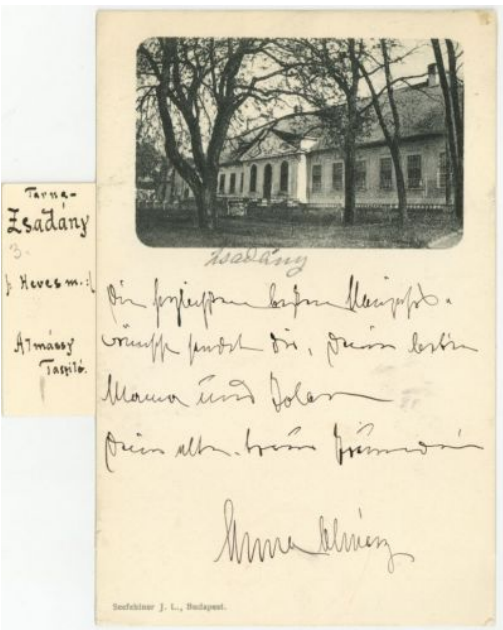 Tarna-
Zsadány
3.
Heves m.
Almássy
Tasziló.
Zsadány
Die herzlichsten besten Neujahrs-
wünsche sendet dir, deiner lieben
Mama und Jolan
Deine alte treue Freundin
Anna Almásy
Seefehlner J. L., Budapest.